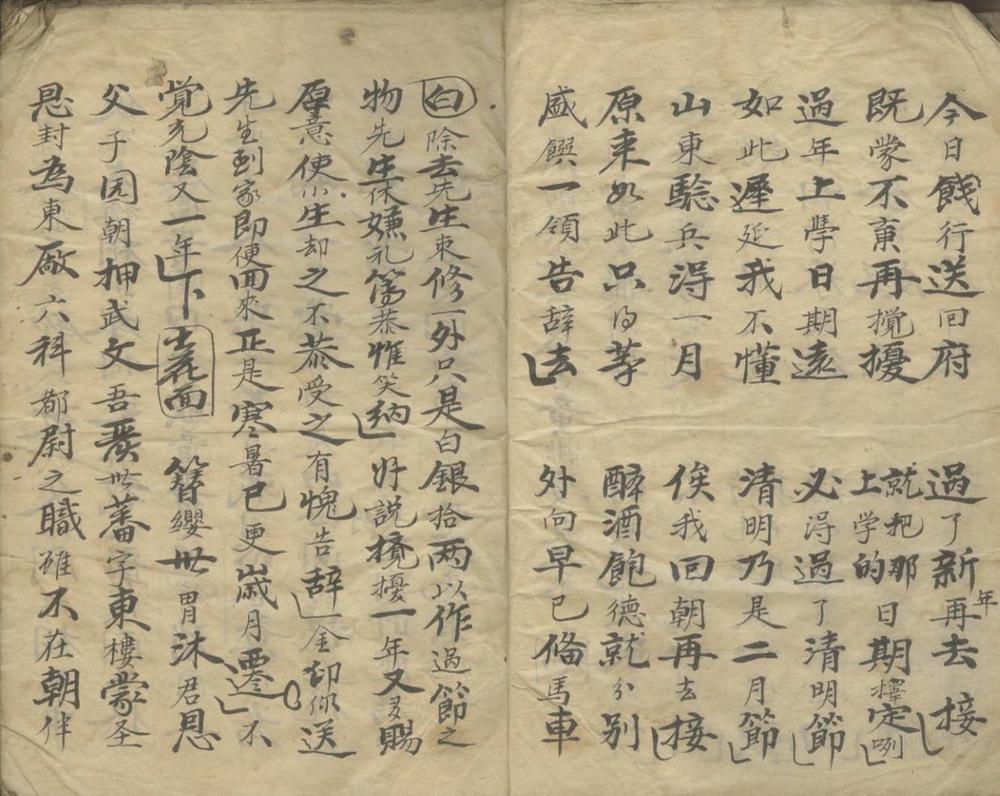 今日餞行送回府　過了新年再去接
既蒙不棄再攪擾　就把那日期擇定咧上学的
過年上學日期遠　必得過了清明節
如此遲延我不懂　清明乃是二月節
山東騐兵得一月　俟我回朝再去接
原来如此只得等　醉酒飽德就分别
盛饌一領告辞去　外向早已偹馬車
白除去先生束修一外只是白銀拾两以作過節之
物先生休嫌礼薄恭惟笑納好説攪擾一年又多賜
厚意使小生却之不恭受之有愧告辞仝却你送
先生到家即便回來正是寒暑已更嵗月遷不
覚光陰又一年下士花面簪纓世胃沐君恩
父子囯朝押武文吾裴世蕃字東樓蒙圣
恩封為東厰六科都尉之職雖不在朝伴